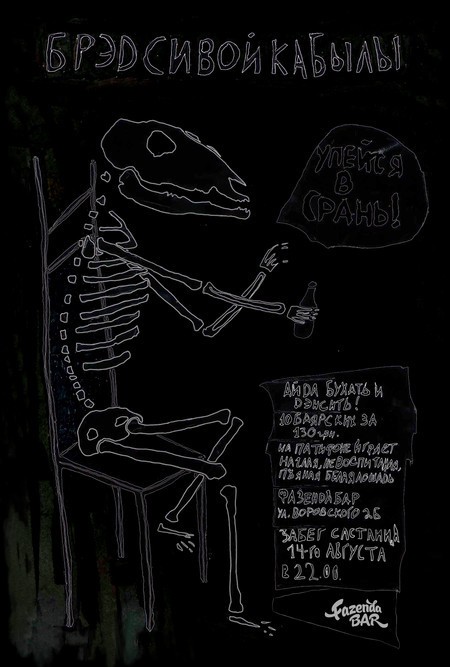 БРЭД СИВОЙ КАБЫЛЫ
УПЕЙСЯ
В
СРАНЬ!
АЙДА БУХАТЬ И
ДЭНСИТЬ!
10 БАЯРСКИХ ЗА
130 грн.
НА ПАТИФОНЕ ИГРАЕТ
НАГЛАЯ, НЕВОСПИТАНАЯ,
ПЪЯНАЯ БЕЛАЯ ЛОШАДЬ
ФАЗЕНДА БАР
УЛ. ВОРОВСКОГО 2Б
ЗАБЕГ САСТАИЦА
14-го АВГУСТА
В 22.00.
Fazenda
BAR